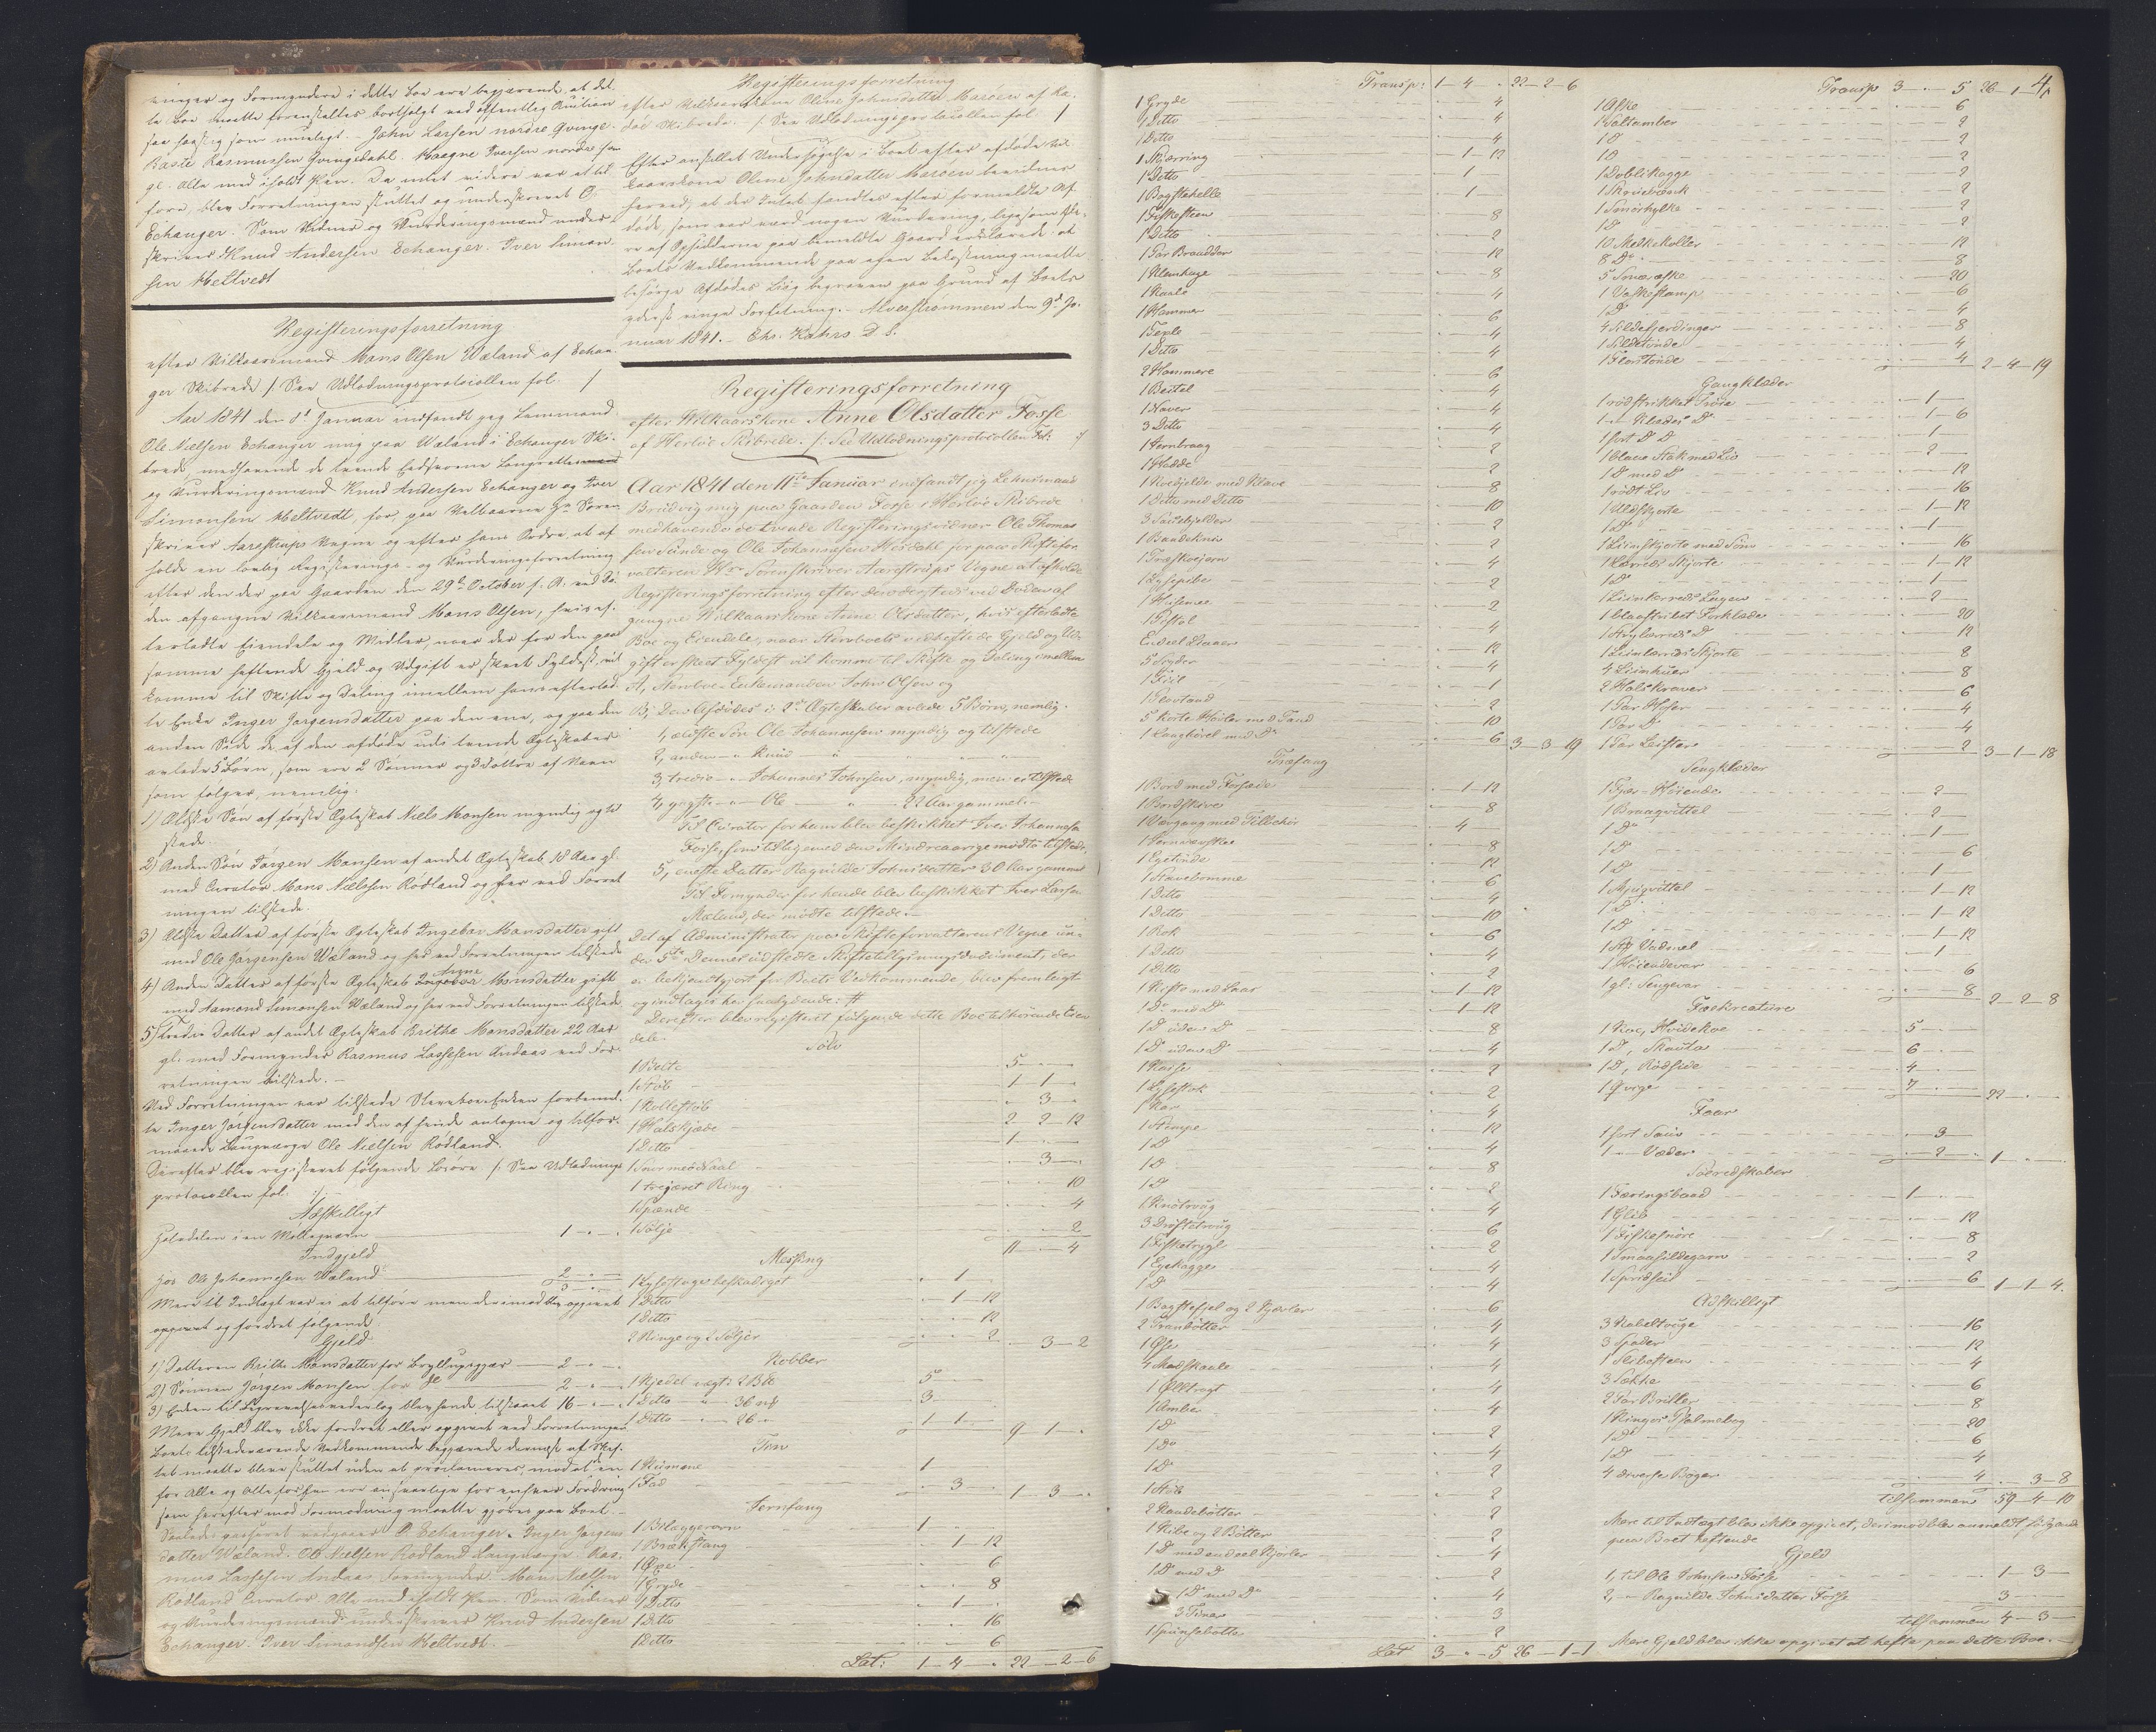 ninger og Formyndere i dette Boe ere begjærende, at det-
te Boe maatte foranstaltes bortsolgt ved offentlig Auction
saa hastig som mueligt. - John Larsen nordre Qvinge.
Baste Rasmussen Qvingedahl. Maagne Iversen nordre Qvin-
ge. Alle med iholdt Pen. Da intet videre var at til-
føre, blev Forretningen sluttet og underskrevet O.
Echanger. Som Vidner og Vurderingsmænd under-
skriver Knud Andersen Echanger. Iver Simon-
sen Meltvedt
Registeringsforretning
efter Vilkaarsmand Mons Olsen Wæland af Echan-
ger Skibrede /: See Udlodningsprotocollen fol.
Aar 1841 den 8de Januar indfandt jeg Lensmand
Ole Nielsen Echanger mig paa Wæland i Echanger Ski-
brede, medhavende de tvende Eedsvorne Laugrettesmænd
og Vurderingsmænd Knud Andersen Echanger og Iver
Simonsen Meltvedt, for, paa Velbaarne Hr. Soren-
skriver Aarestrups Vegne og efter hans Ordre at af-
holde en lovlig Registerings- og Vurderingsforretning
efter den der paa Gaarden den 29de October f. A. ved Dø-
den afgangne Vilkaarsmand Mons Olsen, hvis ef-
terladte Eiendele og Midler, naar der for den paa
samme heftende Gjeld og Udgift er skeet Fyldest, vil
komme til Skifte og Deling imellem hans efterlad-
te Enke Inger Jørgensdatter paa den ene, og paa den
anden Side de af den afdøde udi tvende Ægteskaber
avlede 5 Børn, som ere 2 Sønner og 3 Døttre af Navn
som følger, nemlig:
1) Ældste Søn af første Ægteskab Niels Monsen myndig og til
stede.
2) Anden Søn Jørgen Monsen af andet Ægteskab 18 Aar gl.
med Curator Mons Nielsen Rødland og her ved Forret
ningen tilstede.
3) Ældste Datter af første Ægteskab Ingebor Monsdatter gift
med Ole Jørgensen Wæland og her ved Forretningen tilstede
4) Anden Datter af første Ægteskab Anne Monsdatter gift
med Aamond Simonsen Wæland og her ved Forretningen tilstede
5) Tredie Datter af andet Ægteskab Brithe Monsdatter 22 Aar
gl. med Formynder Rasmus Lassesen Andaas ved For-
retningen tilstede. -
Ved Forretningen var tilstede Stervboe Enken forbemeld-
te Inger Jørgensdatter med den af hende antagne og tilfor-
mænede Laugværge Ole Nielsen Rødland.
Derefter blev registeret følgende Løsøre /: See Udlodnings
protocollen fol. :/
Adskilligt
Halvdelen i en Møllequærn 1 - " - "
Indgjeld
hos Ole Johannesen Wæland 2 - " -
3 - " -
Mere til Indtægt var ei at tilføre men derimod blev opgivet
og fordret følgende.
Gjeld
1) Datteren Brithe Monsdatter for Bryllupsgjær 2 - " - "
2) Sønnen Jørgen Monsen for do 2 - " - "
3) Enken til Begravelsesvederlag 16 - " - "
Mere Gjeld blev ikke fordret eller opgivet ved Forretningen
Boets tilstedeværende Vedkommende begjærede dernæst at Skif-
tet maatte blive sluttet uden at proclameres, mod at en
for Alle og Alle for En ere ansvarlige for enhver Fordring
som herefter mod Formodning maatte gjøres paa Boet. -
Saaledes passeret vedgaaer O. Echanger. Inger Jørgens
datter Wæland. Ole Nielsen Rødland Laugværge. Ras-
mus Lassesen Andaas Formynder. Mons Nielsen
Rødland Curator. Alle med iholdt Pen. Som Vidner
og Vurderingsmænd underskriver Knud Andersen
Echanger. Iver Simonsen Meltvedt. -
Registeringsforretning
efter Vilkaarskone Oline Johnsdatter Marøen af Ra-
døe Skibrede. /: See Udlodningsprotocollen fol
Efter anstillet Undersøgelse i Boet efter afdøde Vil-
kaarskone Oline Johnsdatter Marøen bevidnes
herved, at der Intet fandtes efter formeldte Af-
døde, som var værd nogen Vurdering, ligesom
af Opsidderne paa bemeldte Gaard erklærede at
Boets Vedkommende paa egen Bekostning maatte
besørge Afdødes Liig begraven paa Grund af Boets
yderst ringe Forfatning. - Alverstrømmen den 9de Ja-
nuar 1841. - Chr. Kahrs D. S.
Registeringsforretning
efter Wilkaarskone Anne Olsdatter Fosse
af Herløe Skibrede. /: See Udlodningsprotocollen Fol: :/
Aar 1841 den 11te Januar indfandt jeg Lehnsmand
Brudvig mig paa Gaarden Fosse i Herløe Skibrede
medhavende de tvende Registeringsvidner Ole Thomas
sen Sunde og Ole Johannesen Hosdahl for paa Skiftefor-
valteren Hr. Sorenskriver Aarestrups Vegne at afholde
Registeringsforretning efter den dersteds ved Døden af-
gangne Wilkaarskone Anne Olsdatter, hvis efterladte
Boe og Eiendele, naar Stervboets vedheftede Gjeld og Ud-
gift er skeet Fyldest vil komme til Skifte og Deling imellem
A, Stervboe-Enkemanden John Olsen og
B, Den Afdødes i 2de Ægteskaber avlede 5 Børn, nemlig.
1, ældste Søn Ole Johannesen myndig og tilstede
2, anden - " - Knud " " - " -
3, tredie - " - Johannes Johnsen, myndig, men ei tilstede
4, yngste - " - Ole - " - 22 Aar gammel. -
Til Curator for ham blev beskikket Iver Johannesen
Fosse, som tilligemed den Mindreaarige mødte tilstede.
5, eneste Datter Ragnilde Johnsdatter 30 Aar gammel
Til Formynder for hende blev beskikket Iver Larsen
Mæland, der mødte tilstede. -
Det af Administrator paa Skifteforvalterens Vegne un-
der 5te Dennes udstedte Skiftetillysningsdocument, der
er bekjendtgjort for Boets Vedkommende blev fremlagt
og indtages her saalydende: #
Derefter blev registeret følgende dette Boe tilhørende Eien
dele.
Sølv
1 Belte 5 - " - "
1 Støb 1 - 1 - "
1 Rollestøb " - 3 - "
1 Halskjæde 2 - 2 - 12
1 Ditto 1 - " - "
1 Snor med Naal " - 3 - "
1 trejæret Ring " - " - 10
1 Spænde " - " - 4
1 Sølje " - " - 2
11 - " - 4
Messing
1 Lysestage beskadiget " - 1 - "
1 Ditto " - 1 - 12
1 Ditto " - " - 12
2 Ringe og 2 Søljer " - " - 2 " - 3 - 2
Kobber
1 Kjedel vægt: 2 B℔ 5 - " - "
1 Ditto - " - 36 m℔ 3 - " - "
1 Ditto - " - 26 " 1 - 1 - " 9 - 1 - "
Tin
1 Kumme 1 - " - "
1 Fad " - 3 - " 1 - 3 - "
Jernfang
1 Bilæggerovn 1 - " - "
1 Brækstang " - 1 - 12
1 Øxe " - " - 6
1 Gryde " - " - 8
1 Ditto " - 1 - "
1 Ditto " - " - 16
1 Ditto " - " - 6
Lat: 1 - 4 - " 22 - 2 - 6
Transp: 1 - 4 - " 22 - 2 - 6
1 Gryde " - " - 4
1 Ditto " - " - 4
1 Ditto " - " - 4
1 Skjærring " - 1 - 12
1 Ditto " - 1 - "
1 Bagstehelle " - 1 - "
1 Fiskesteen " - " - 8
1 Ditto " - " - 2
1 Par Braadder " - " - 12
1 Klemhage " - " - 8
1 Naale " - " - 4
1 Hammer " - " - 6
1 Texle " - " - 4
1 Ditto " - " - 4
2 Hammere " - " - 6
1 Beitel " - " - 4
1 Naver " - " - 4
3 Ditto " - " - 4
1 Jernbraag " - " - 2
1 Hadde " - " - 2
1 Koebjelde med Klave " - " - 8
1 Ditto med Ditto " - " - 10
3 Sauebjelder " - " - 2
1 Baandekniv " - " - 2
1 Træskoejern " - " - 4
1 Lysepibe " - " - 2
1 Huusmee " - " - 2
1 Pistol " - " - 4
Endeel Laaser " - " - 12
5 Snyder " - " - 4
1 Fiil " - " - 1
1 Jernstand " - " - 2
5 korte Hørler med Tand " - " - 10
1 Langhørel med Do " - " - 6 3 - 3 - 19
Træfang
1 Bord med Forsæde " - 1 - 12
1 Bordskive " - " - 8
1 Værgang med Tilbehør " - 4 - "
1 Hornævskee " - " - 8
1 Egetønde " - " - 12
1 Stavebomme " - " - 6
1 Ditto " - " - 4
1 Ditto " - " - 10
1 Rok " - " - 6
1 Ditto " - " - 4
1 Ditto " - " - 2
1 Kiste med Laas " - 1 - 12
1 Do med Do " - 1 - 12
1 D uden D " - " - 8
1 D uden D " - " - 4
1 Kasse " - " - 2
1 Lysestok " - " - 2
1 Kar " - " - 4
1 Stampe " - " - 12
1 D " - " - 4
1 D " - " - 8
1 D " - " - 2
1 Knøtroug " - " - 4
3 Drøftetroug " - " - 6
1 Fisketrygl " - " - 2
1 Egekagge " - " - 4
1 D " - " - 4
1 Bagstefjel og 2 Kjevler " - " - 6
2 Tranbøtter " - " - 4
1 Øse " - " - 4
4 Madskaale " - " - 4
1 Ølltragt " - " - 4
1 Ambar " - " - 4
1 D " - " - 2
1 Do " - " - 4
1 D " - " - 2
1 Støb " - " - 2
2 Haandebøtter " - " - 2
1 Kibe og 2 Bøtter " - " - 2
1 D med endeel Kjørler " - " - 4
1 D med D " - " - 2
1 D med Do " - " - 4
3 Tiner " - " - 3
1 Spunsebøtte " - " - 2
Lat 3 - " - 5 26 - 1 - 1
4
Transp 3 - " - 5 26 - 1 - 1
1 Aske " - " - 6
1 Saltambar " - " - 2
1 D " - " - 2
1 D " - " - 2
1 Dobbltkagge " - " - 2
1 Skrivebænk " - " - 2
1 Smørhylke " - " - 2
1 D " - " - 2
10 Melkekoller " - " - 12
8 Do " - " - 8
5 Smøræske " - " - 20
1 Vaskestamp " - " - 6
1 D " - " - 4
4 Sildefjerdinger " - " - 8
1 Sildetønde " - " - 4
1 Flortønde " - " - 4 2 - 4 - 19
Gangklæder
1 rødstrikket Trøie " - 1 - "
1 - " - Klædes Do " - 1 - 6
1 sort D D " - 1 - "
1 blaae Stak med Liv " - 2 - "
1 D med D " - " - 12
1 rødt Liv " - " - 16
1 Uldskjorte " - 1 - 12
1 D " - 1 - "
1 Liinskjorte med Søm " - " - 16
1 Lærreds Skjorte " - 1 - 12
1 D " - 1 - "
1 Liinlærreds Lagen " - 2 - "
1 blaastribet Forklæde " - " - 20
1 Strylærreds D " - " - 12
1 Liinlærreds Skjorte " - " - 8
4 Liinhuer " - " - 8
2 Halskraver " - " - 6
1 Par Hoser " - " - 4
1 Par D " - " - 4
1 Par Leister " - " - 2 3 - 1 - 18
Sengklæder
1 Fjær-Høiende " - 2 - "
1 Braagvittel " - 2 - "
1 Do " - 1 - "
1 D " - " - 6
1 D " - 1 - "
1 Spiigvittel " - 1 - 12
1 D " - 1 - 12
1 D " - 1 - 12
1 Stk Vadmel " - 1 - "
1 Høiendevar " - " - 6
1 gl: Sengevar " - " - 8 2 - 2 - 8
Fækreature
1 Koe, Hvidekoe 5 - " - "
1 D, Skaula 6 - " - "
1 D, Rødside 4 - " - "
1 Qvige 7 - " - " 22 - " - "
Faar
1 sort Saue " - 3 - "
1 - " - Væder " - 2 - " 1 - " - "
Søeredskaber
1 Færingsbaad 1 - " - "
1 Glib " - " - 12
1 Fiskesnøre " - " - 8
1 Smaasildegarn " - " - 2
1 Spridseil " - " - 6 1 - 1 - 4
Adskilligt
3 Kabeltouge " - " - 16
3 Spader " - " - 12
1 Slibesteen " - " - 4
3 Sække " - " - 6
2 Par Briller " - " - 8
1 Kingos Psalmebog " - " - 20
1 D " - " - 6
1 D " - " - 4
4 diverse Bøger " - " - 4 " - 3 - 8
tilsammen 59 - 4 - 10
Mere til Indtægt blev ikke opgivet, derimod blev anmeldt følgende
paa Boet heftende
Gjeld
1, til Ole Johnsen Fosse " - 1 - 3 - "
2, - " - Ragnilde Johnsdatter Fosse 3 - " - "
tilsammen 4 - 3 - "
Mere Gjeld blev ikke opgivet at hefte paa dette Boe. -